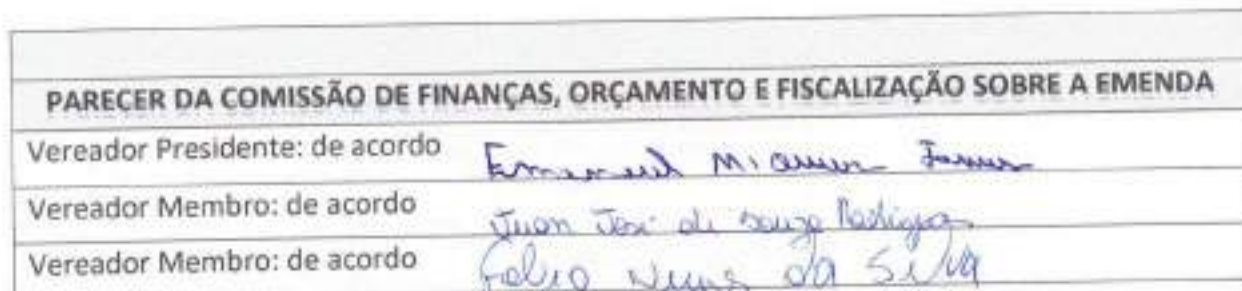 PARECER DA COMISSÃO DE FINANÇAS, ORÇAMENTO E FISCALIZAÇÃO SOBRE A EMENDA
Vereador Presidente: de acordo
Vereador Membro: de acordo Juan José de Souza Rodrigues
Vereador Membro: de acordo Fabio Nunes da Silva